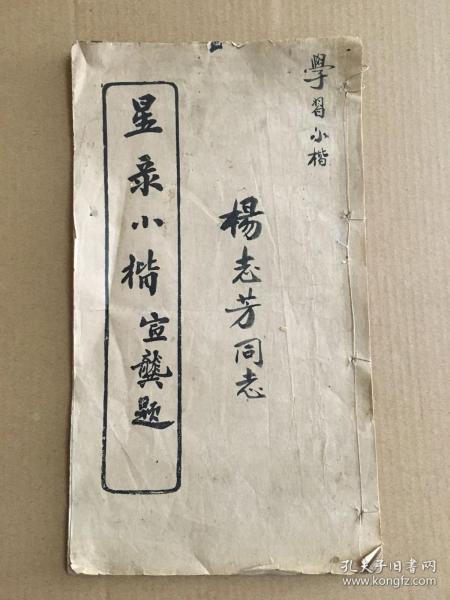 學習小楷
楊志芳同志
星彔小楷 宣龔题
孔夫子旧书网
www.kongfz.com